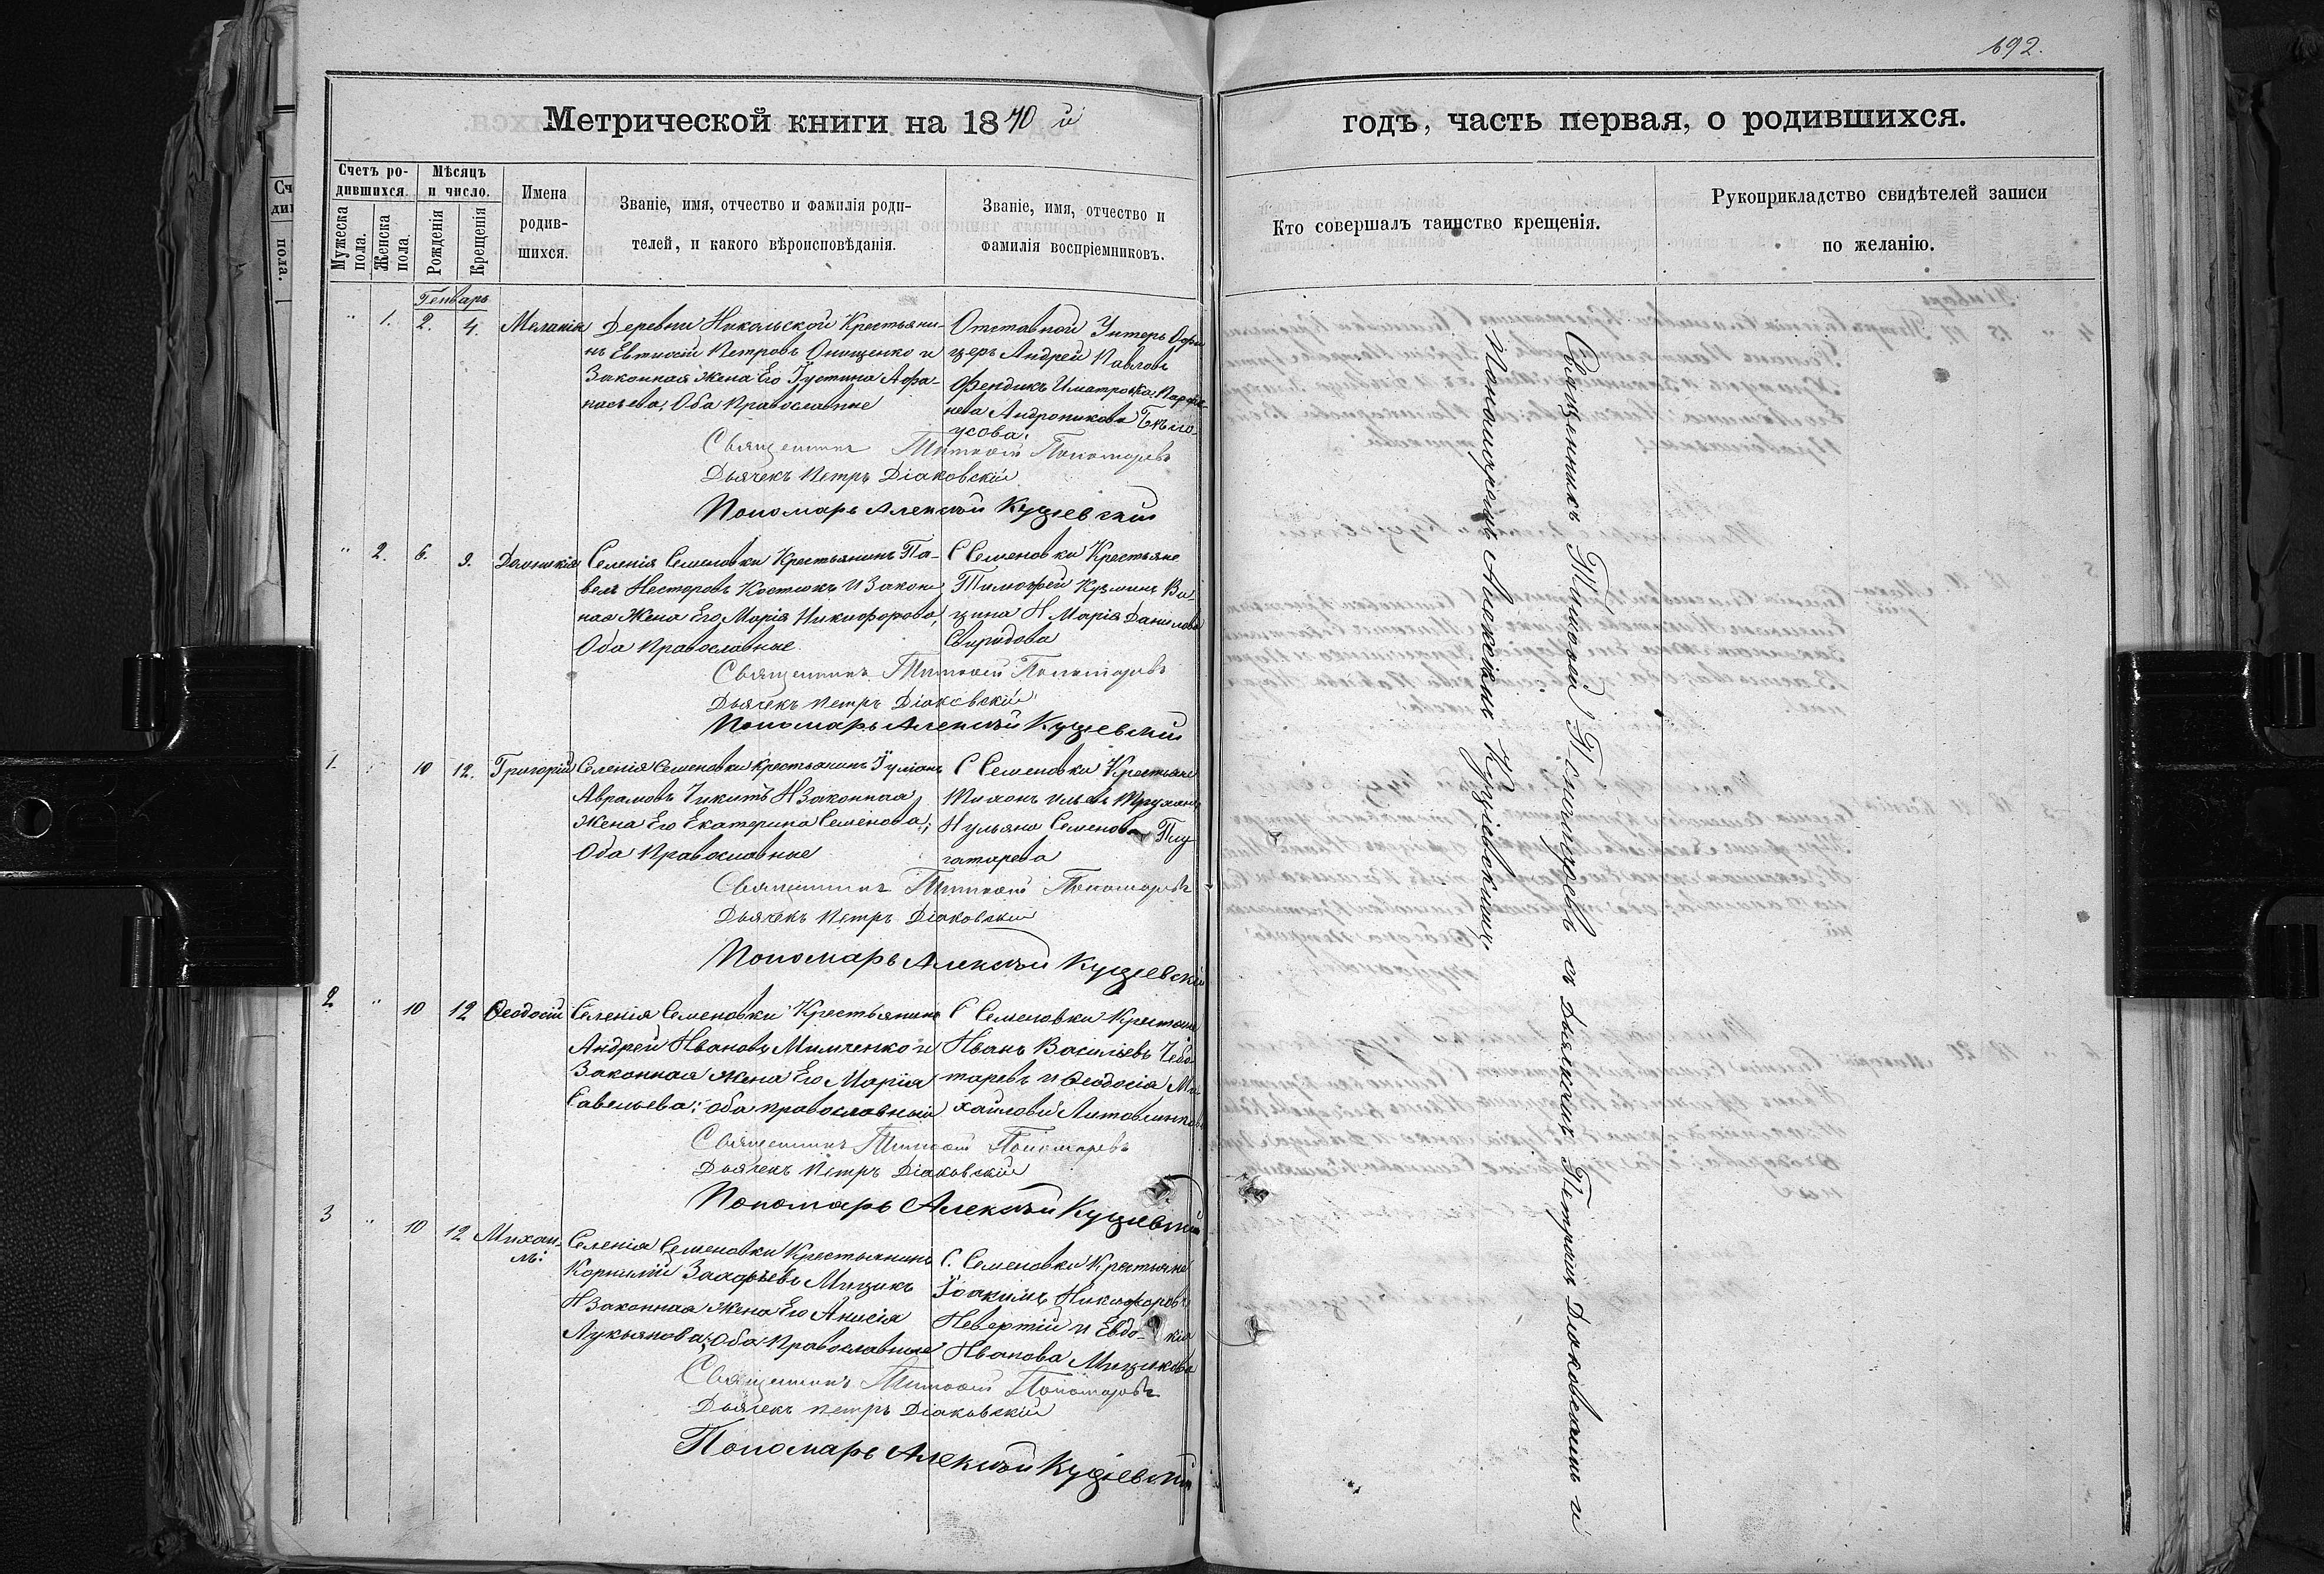 692.
Метрической книги на 1870 й
годъ, часть первая, о родившихся.
Счетъ ро-
дившихся.
Мужеска
пола.
Женска
пола.
Мѣсяцъ
и число.
Рожденія
Крещенія
Имена
родив-
шихся.
Званіе, имя, отчество и фамилія роди-
телей, и какого вѣроисповѣданія.
Званіе, имя, отчество и
фамилія воспріемниковъ.
Кто совершалъ таинство крещенія.
Рукоприкладство свидѣтелей записи
по желанію.
Генварь
" 1. 2. 4. Меланія
Деревни Никольской Крестьяни-
нъ Евтихій Петровъ Онищенко и
Законная Жена Его Іустина Афа-
насьева, Оба Православные
Отставной Унтеръ Офи
церъ Андрей Павловъ
Фендикъ
Андроникова
усова.
Священникъ Тимофей Пономаревъ
Дьячекъ Петръ Діаковскій
Пономарь Алексѣй Куціевскій
" 2. 6. 9. Домникія
Селенія Семеновки Крестьянинъ Па-
велъ Несторовъ Костюкъ И Закон
ная Жена Его Марія Никифорова,
Оба Православные
С Семеновки Крестьяне
Тимофей Кузминъ Ва-
цина И Марія Данилова
Свиридова
Священникъ Тимофей Пономаревъ
Дьячекъ Петръ Діаковскій
Пономарь Алексѣй Куціевскій
1. 10 12. Григорій
Селенія Семеновки Крестьянинъ Іуліанъ
Аврамовъ Чикитъ И Законная
Жена Его Екатерина Семенова;
Оба Православные
С Семеновки Крестьяне
Тихонъ Ильевъ
И Ульяна Семенова Плу
гатарева
Священникъ Тимофей Пономаревъ
Дьячекъ Петръ Діаковскій
Пономарь Алексѣй Куціевскій
2 " 10 12 Ѳеодосій
Селенія Семеновки Крестьянинъ
Андрей Ивановъ Мимченко и
Законная Жена Его Марія
Савельева; оба православный
С Семеновки Крестьяне
Иванъ Васильевъ Чебо
таревъ и Ѳеодосія Ми
хайлова
Священникъ Тимофей Пономаревъ
Дьячекъ Петръ Діаковскій
Пономарь Алексѣй Куціевскій
3 " 10 12 Михаи-
лъ:
Селенія Семеновки Крестьянинъ
Корнилій Захарьевъ Мицикъ
И Законная Жена Его Анисія
Лукьянова; Оба Православные
С. Семеновки Крестьяне
Іоакимъ Никифоровъ
Невертій и Евдо-кія
Иванова Мицикова
Священникъ Тимофей Пономаревъ
Дьячекъ Петръ Діаковскій
Пономарь Алексѣй Куціевскій
Священникъ Тимофей Пономаревъ съ Дьячкомъ Петромъ Діаковскимъ и
Пономаремъ Алексіемъ Куціевскимъ.